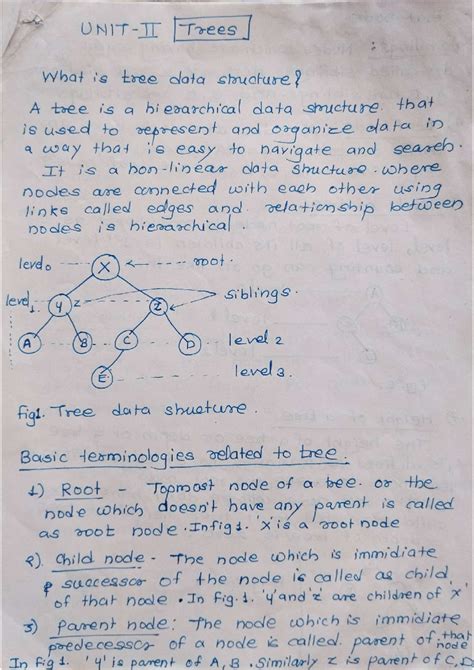 UNIT-II Trees
What is tree data structure?
A tree is a hierarchical data structure that
is used to represent and organize data in
a way that is easy to navigate and search.
It is a non-linear data structure where
nodes are connected with each other using
links called edges and relationship between
nodes is hierarchical
level0 X root.
level1 Y Z siblings.
A B C D level 2
E level 3.
fig1. Tree data structure.
Basic terminologies related to tree.
1) Root - Topmost node of a tree or the
node which doesn't have any parent is called
as root node. In fig 1. 'X' is a root node
2). Child node - The node which is immidiate
successor of the node is called as child
of that node. In Fig. 1. 'Y' and 'Z' are children of 'X'
3) Parent node: The node which is immidiate
predecessor of a node is called parent of that node
In Fig 1. 'Y' is parent of A, B. Similarly Z is parent of C